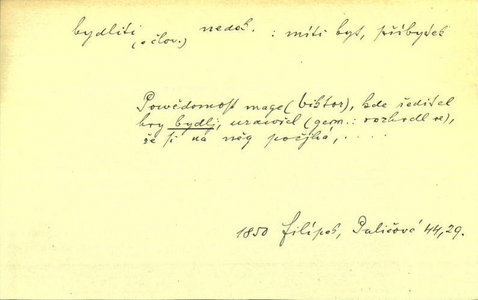 bydliti nedok. : míti byt, příbytek
(o člov.)
Powědomost mage (Viktor), kde ředitel
hry bydlj, uzawřel (germ.: rozhodl se),
že si na něg počjhá, . . . .
1850 Filípek, Paličová 44, 29.